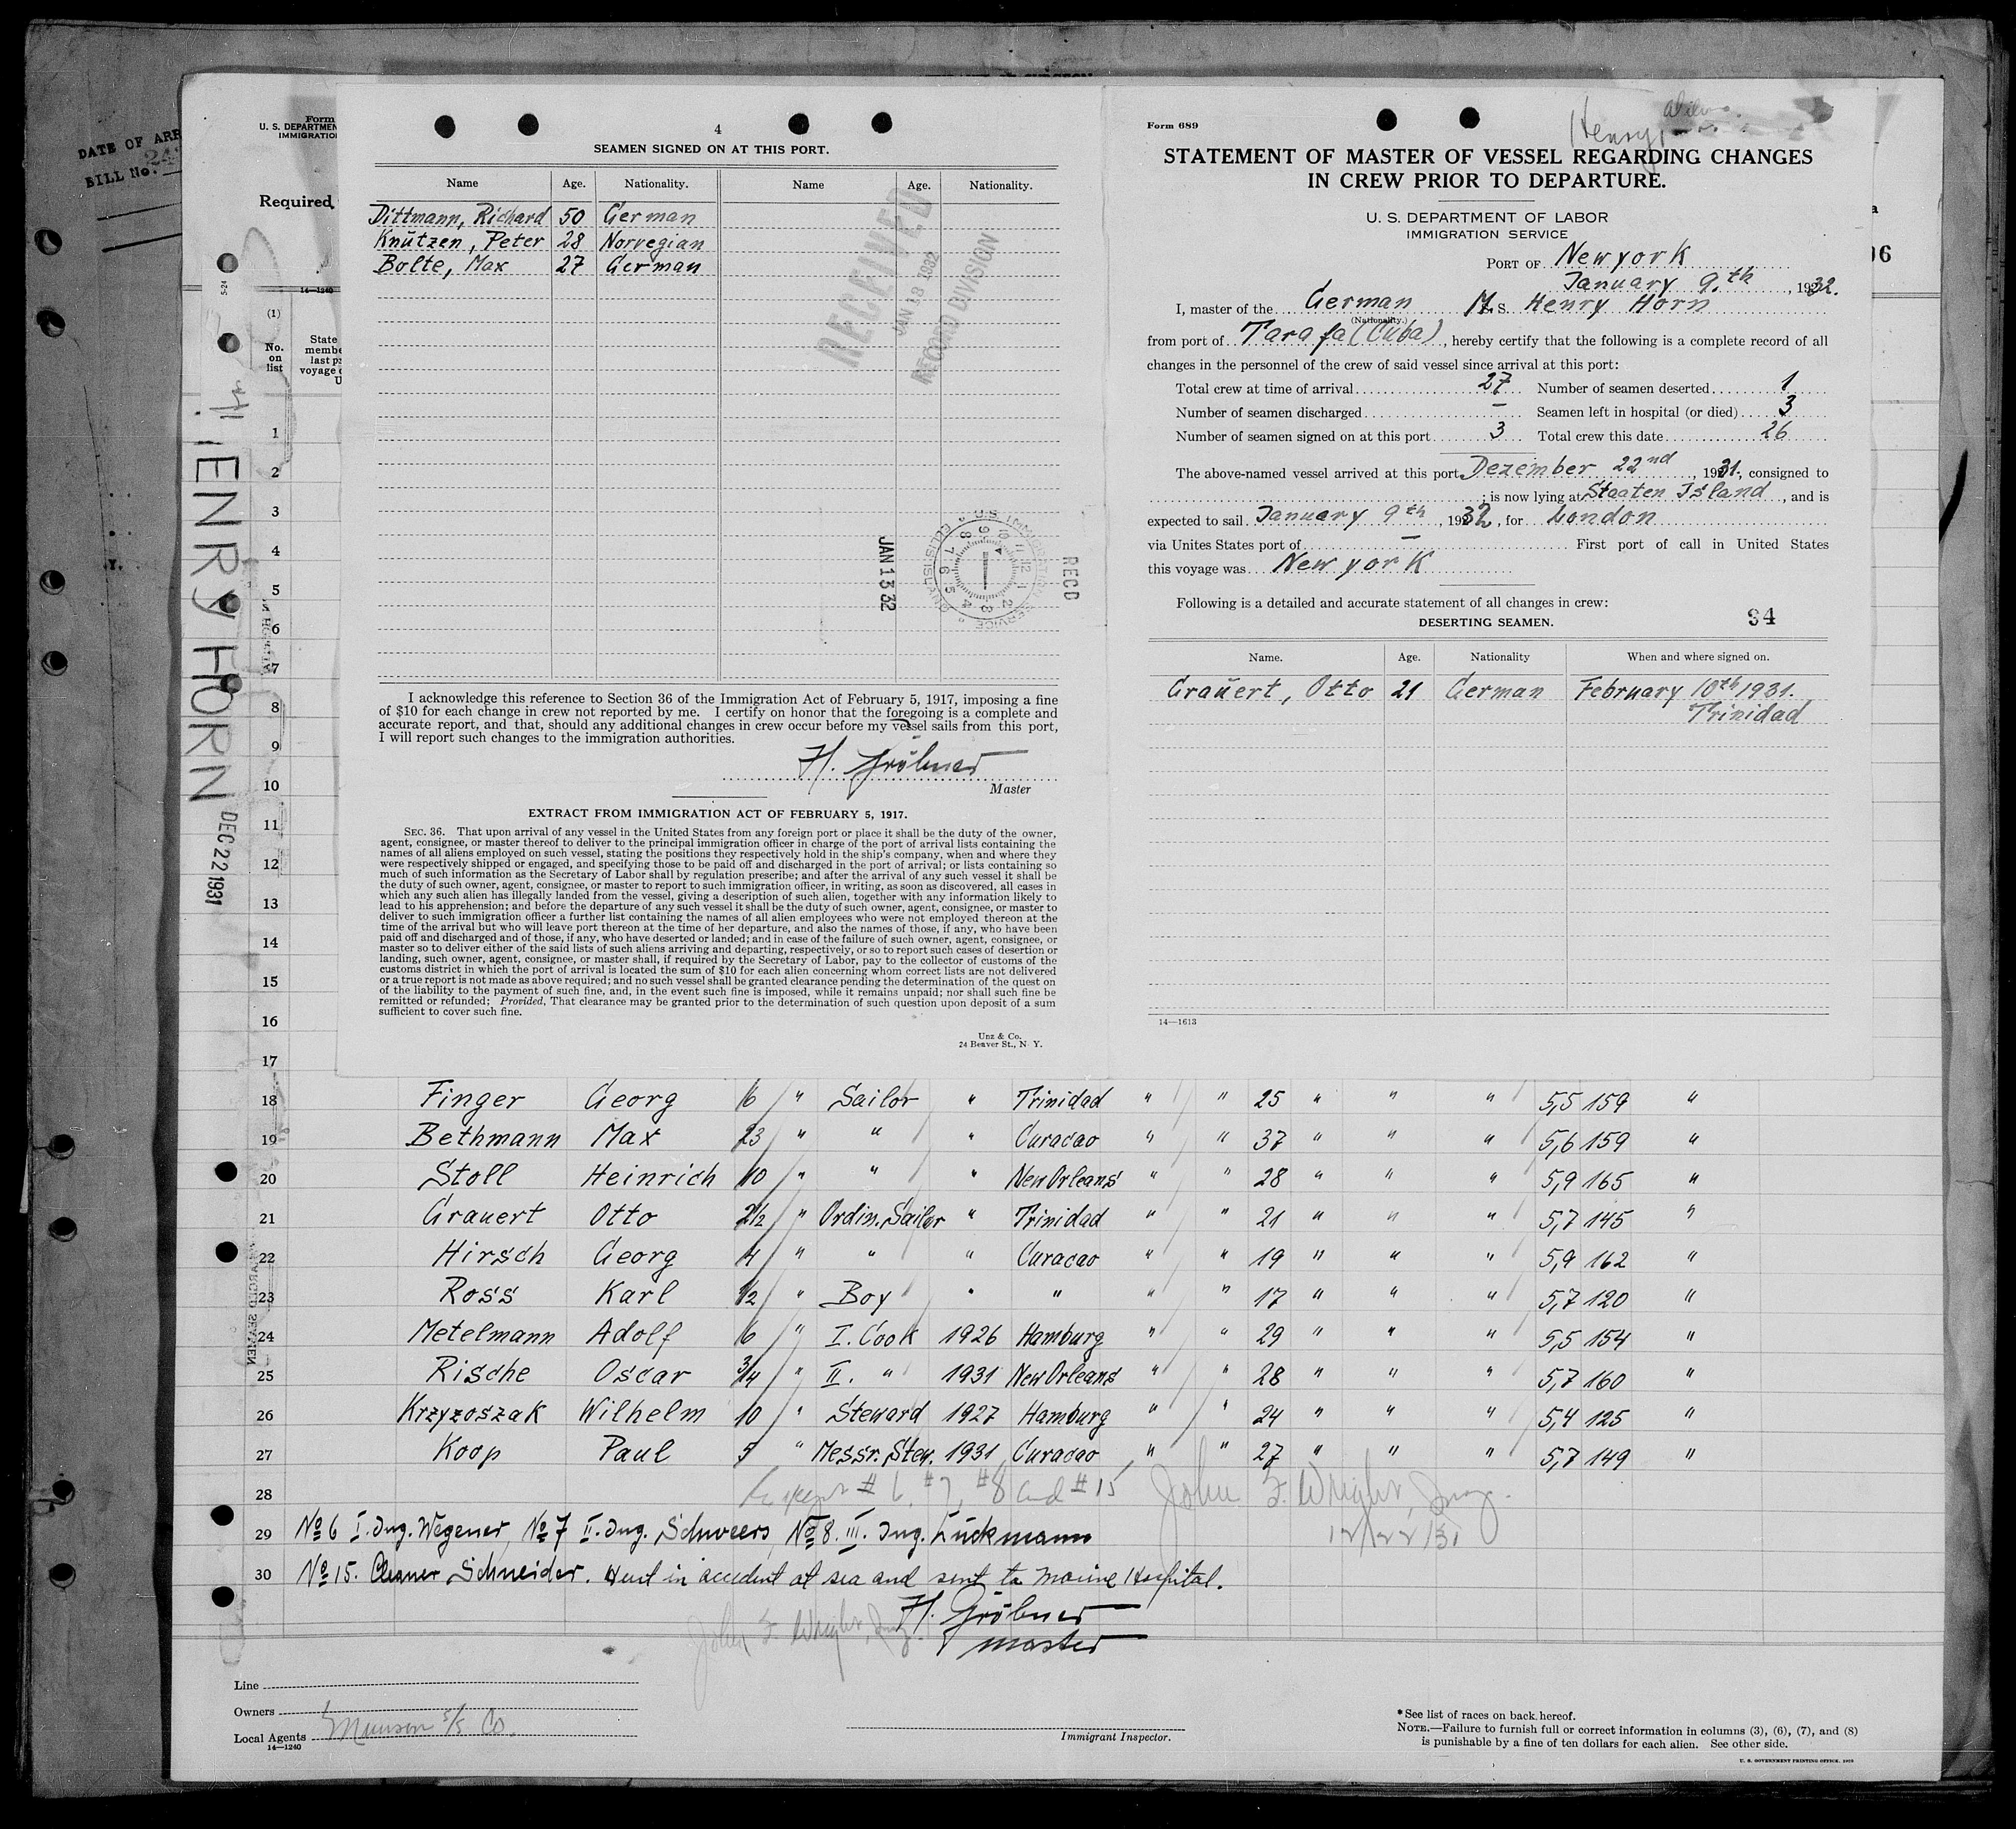 DATE OF ARR
BILL No. 24
Form
U. S. DEPARTMEN
IMMIGRATIO
Required
14—1240
5-24
(1)
No.
on
list
State
membe
last p
voyage o
U
HENRY HORN
DEC 22 1931
1
2
3
4
5
6
7
8
9
10
11
12
13
14
15
16
17
4
SEAMEN SIGNED ON AT THIS PORT.
Name Age. Nationality. Name Age. Nationality.
Dittmann, Richard 50 German
Knützen, Peter 28 Norvegian
Bolte, Max 27 German
RECEIVED
JAN 18 1932
RECORD DIVISION
JAN 13 32
U.S. IMMIGRATION SERVICE ELLIS ISLAND
RECD
I acknowledge this reference to Section 36 of the Immigration Act of February 5, 1917, imposing a fine
of $10 for each change in crew not reported by me. I certify on honor that the foregoing is a complete and
accurate report, and that, should any additional changes in crew occur before my vessel sails from this port,
I will report such changes to the immigration authorities.
H. Gröbner
Master
EXTRACT FROM IMMIGRATION ACT OF FEBRUARY 5, 1917.
SEC. 36. That upon arrival of any vessel in the United States from any foreign port or place it shall be the duty of the owner,
agent, consignee, or master thereof to deliver to the principal immigration officer in charge of the port of arrival lists containing the
names of all aliens employed on such vessel, stating the positions they respectively hold in the ship's company, when and where they
were respectively shipped or engaged, and specifying those to be paid off and discharged in the port of arrival; or lists containing so
much of such information as the Secretary of Labor shall by regulation prescribe; and after the arrival of any such vessel it shall be
the duty of such owner, agent, consignee, or master to report to such immigration officer, in writing, as soon as discovered, all cases in
which any such alien has illegally landed from the vessel, giving a description of such alien, together with any information likely to
lead to his apprehension; and before the departure of any such vessel it shall be the duty of such owner, agent, consignee, or master to
deliver to such immigration officer a further list containing the names of all alien employees who were not employed thereon at the
time of the arrival but who will leave port thereon at the time of her departure, and also the names of those, if any, who have been
paid off and discharged and of those, if any, who have deserted or landed; and in case of the failure of such owner, agent, consignee, or
master so to deliver either of the said lists of such aliens arriving and departing, respectively, or so to report such cases of desertion or
landing, such owner, agent, consignee, or master shall, if required by the Secretary of Labor, pay to the collector of customs of the
customs district in which the port of arrival is located the sum of $10 for each alien concerning whom correct lists are not delivered
or a true report is not made as above required; and no such vessel shall be granted clearance pending the determination of the quest on
of the liability to the payment of such fine, and, in the event such fine is imposed, while it remains unpaid; nor shall such fine be
remitted or refunded; Provided, That clearance may be granted prior to the determination of such question upon deposit of a sum
sufficient to cover such fine.
Unz & Co.
24 Beaver St., N. Y.
Form 689
Henry
STATEMENT OF MASTER OF VESSEL REGARDING CHANGES
IN CREW PRIOR TO DEPARTURE.
U. S. DEPARTMENT OF LABOR
IMMIGRATION SERVICE
PORT OF New york
January 9.th, 1932.
I, master of the German M. S. Henry Horn
(Nationality.)
from port of Tarafa (Cuba), hereby certify that the following is a complete record of all
changes in the personnel of the crew of said vessel since arrival at this port:
Total crew at time of arrival 27 Number of seamen deserted 1
Number of seamen discharged — Seamen left in hospital (or died) 3
Number of seamen signed on at this port 3 Total crew this date 26
The above-named vessel arrived at this port Dezember 22nd, 1931, consigned to
; is now lying at Staaten Island, and is
expected to sail January 9th, 1932, for London
via Unites States port of — First port of call in United States
this voyage was New york
Following is a detailed and accurate statement of all changes in crew:
DESERTING SEAMEN.
34
Name. Age. Nationality When and where signed on.
Grauert, Otto 21 German February 10th 1931.
Trinidad
14—1613
a
96
18 Finger Georg 16 " Sailor " Trinidad " " 25 " " " 5,5 159 "
19 Bethmann Max 23 " " " Curacao " " 37 " " " 5,6 159 "
20 Stoll Heinrich 10 " " " New Orleans " " 28 " " " 5,9 165 "
21 Grauert Otto 2½ " Ordin. Sailor " Trinidad " " 21 " " " 5,7 145 "
22 Hirsch Georg 4 " " " Curacao " " 19 " " " 5,9 162 "
23 Ross Karl ½ " Boy " " " " 17 " " " 5,7 120 "
24 Metelmann Adolf 6 " I. Cook 1926 Hamburg " " 29 " " " 5,5 154 "
25 Rische Oscar ¾ " II. " 1931 New Orleans " " 28 " " " 5,7 160 "
26 Krzyzoszak Wilhelm 10 " Steward 1927 Hamburg " " 24 " " " 5,4 125 "
27 Koop Paul 5 " Messr. Stew. 1931 Curacao " " 27 " " " 5,7 149 "
28 # 6, #7, #8 and #15 John F. Wright, Insp.
12/22/31
29 No 6 I. Ing. Wegener, No 7 II. Ing. Schweers, No 8. III. Ing. Lückmann
30 No 15. Cleaner Schneider. Went in accident at sea and sent to Marine Hospital.
H. Gröbner
master
John F. Wright, Insp.
Line
Owners
Local Agents Munson S/S Co.
14—1240
Immigrant Inspector.
* See list of races on back hereof.
NOTE.—Failure to furnish full or correct information in columns (3), (6), (7), and (8)
is punishable by a fine of ten dollars for each alien. See other side.
U. S. GOVERNMENT PRINTING OFFICE